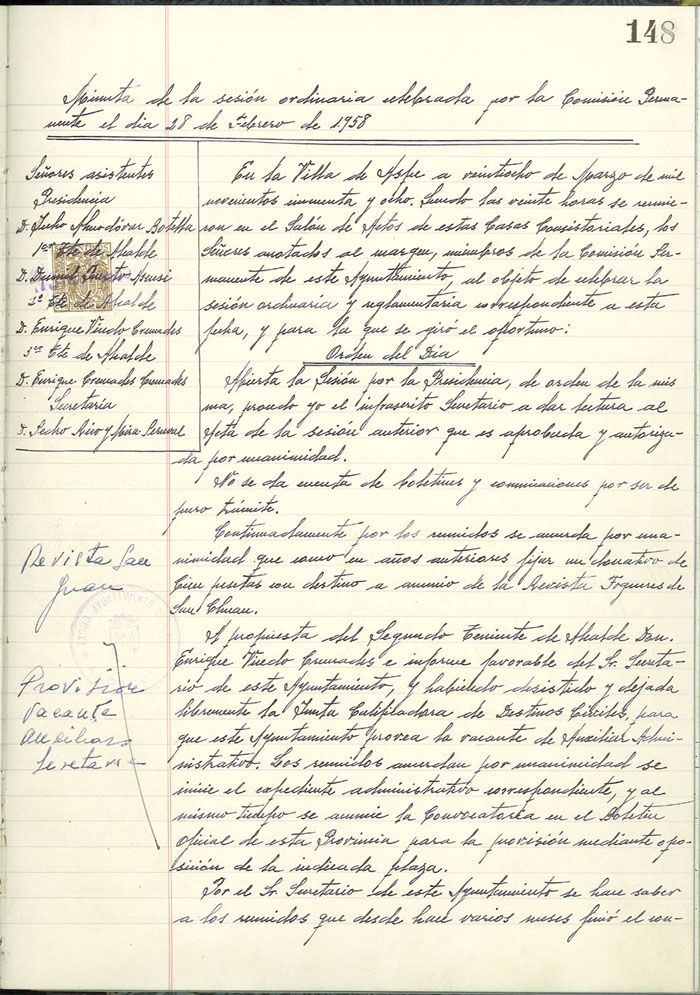 148
Minuta de la sesión ordinaria celebrada por la Comisión Perma-
nente el dia 28 de Febrero de 1958
Señores asistentes
Presidencia
D. Almodóvar Botella
1er Tte de Alcalde
D. Puerto Asensi
2º Tte de Alcalde
D. Enrique Cremades
3er Tte de Alcalde
D. Enrique Cremades Cremades
Secretaría
D. Pedro y Mira-Perceval
En la Villa de Aspe a veintiocho de Marzo de mil
novecientos cincuenta y ocho. Siendo las veinte horas se reunie-
ron en el Salón de Actos de estas Casas Consistoriales, los
Señores anotados al margen, miembros de la Comisión Per-
manente de este Ayuntamiento, al objeto de celebrar la
sesión ordinaria y reglamentaria correspondiente a esta
fecha, y para la que se giró el oportuno:
Orden del Dia
Abierta la Sesión por la Presidencia, de orden de la mis
ma, procedo yo el infrascrito Secretario a dar lectura al
Acta de la sesión anterior que es aprobada y autoriza-
da por unanimidad.
No se da cuenta de boletines y comunicaciones por ser de
puro trámite.
Revista San
Juan
Continuadamente por los reunidos se acuerda por una-
nimidad que como en años anteriores fijar un donativo de
Cien pesetas con destino a anuncio de la Revista Fogueres de
San Chuan.
Provisión
Vacante
Auxiliar
Secretaria
A propuesta del Segundo Teniente de Alcalde Don.
Enrique Cremades e informe favorable del Sr. Secreta-
rio de este Ayuntamiento, y habiendo desistido y dejada
libremente la Junta Calificadora de Destinos Civiles, para
que este Ayuntamiento provea la vacante de Auxiliar Admi-
nistrativo. Los reunidos acuerdan por unanimidad se
inicie el expediente administrativo correspondiente, y al
mismo tiempo se anuncie la Convocatoria en el Boletin
Oficial de esta Provincia para la provisión mediante opo-
sición de la indicada plaza.
Por el Sr. Secretario de este Ayuntamiento se hace saber
a los reunidos que desde hace varios meses finió el con-